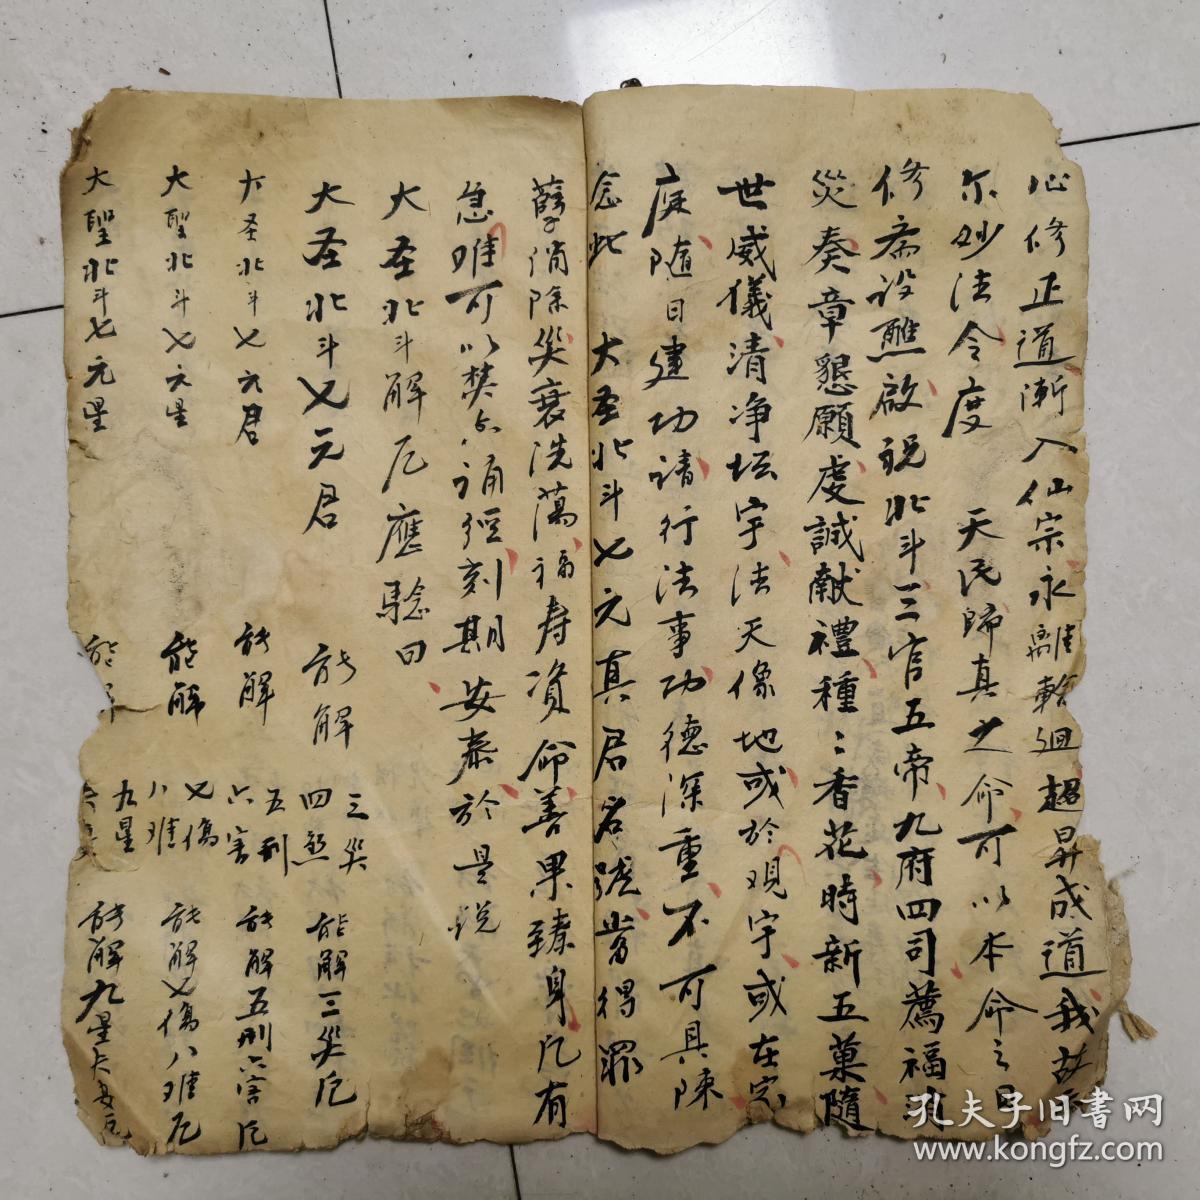 心修正道漸入仙宗永離輪迴超昇成道我故示
尔妙法令度 天民歸真之命可以本命之日
修斋设醮啟祝北斗三官五帝九府四司薦福消
災奏章懇願虔誠献禮種〻香花時新五菓隨
世威儀清净坛宇法天像地或於观宇或在家
庭随日建功请行法事功德深重不可具陳
念此 大圣北斗七元真君名號當得罪
孽消除災衰洗蕩福寿资命善果臻身凡有
急难可以焚香诵經刻期安泰於是说
大圣北斗解厄應驗曰
大圣北斗七元君 能解三災厄
三災
四煞
大圣北斗七元君 能解五刑六害厄
五刑
六害
大聖北斗七元星 能解七傷八难厄
七傷
八难
大聖北斗七元星 能解九星
九星
孔夫子旧书网
www.kongfz.com